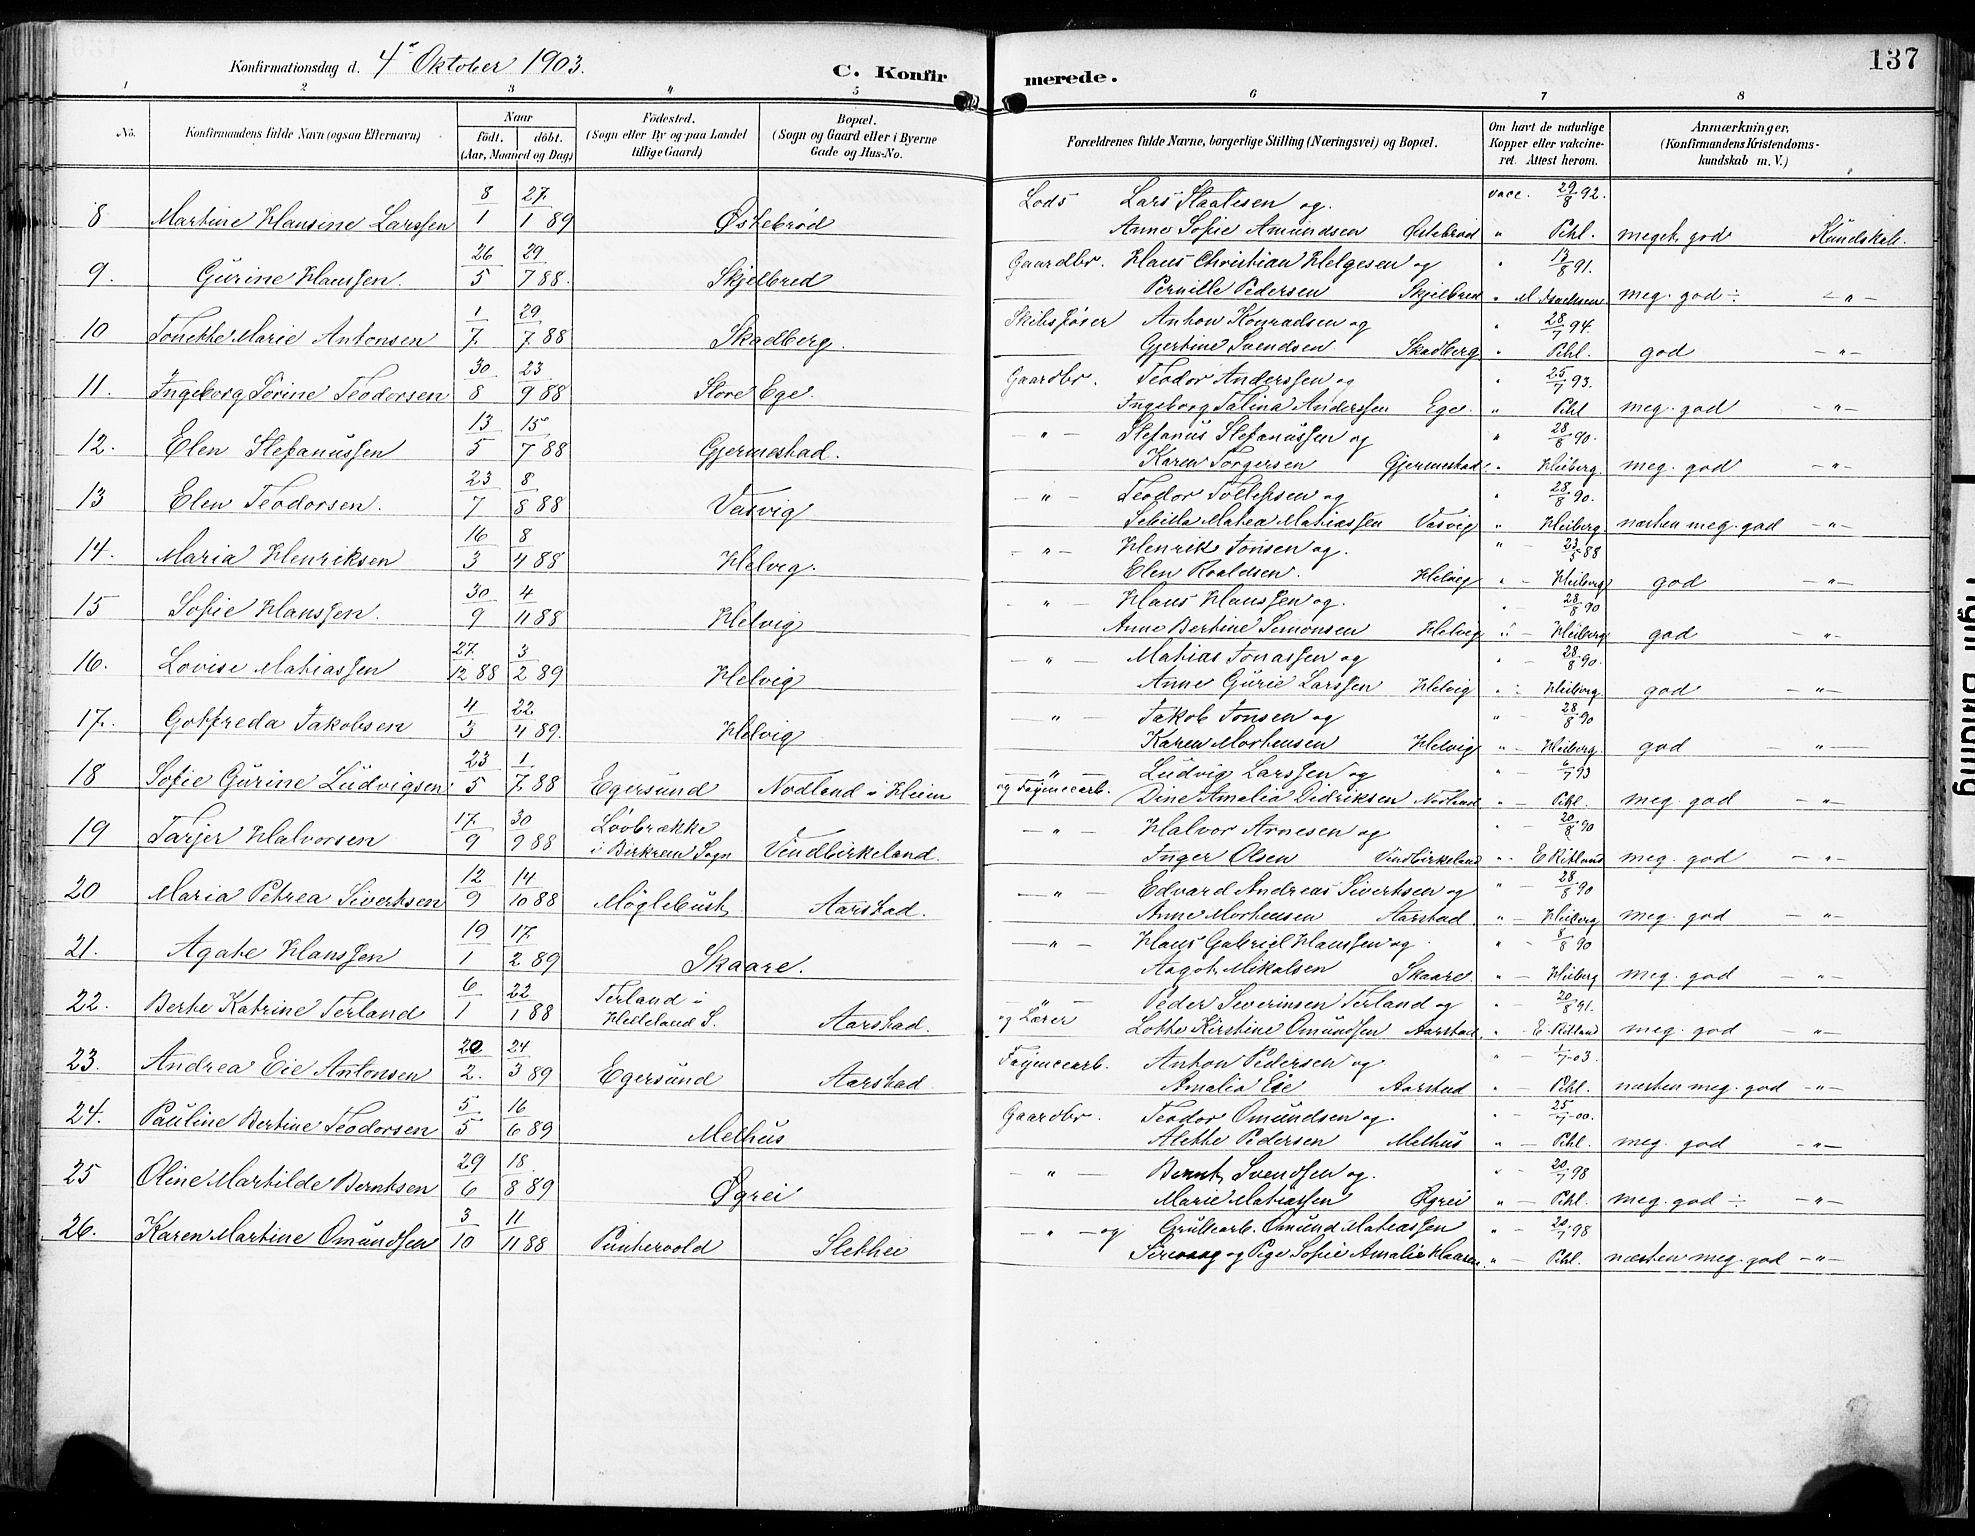 137
Konfirmationsdag d. 4de Oktober 1903.
C. Konfirmerede.
1 2 3 4 5 6 7 8
No. Konfirmandens fulde Navn (ogsaa Efternavn) Naar født. døbt. (Aar, Maaned og Dag) Fødested. (Sogn eller By og paa Landet tillige Gaard) Bopæl. (Sogn og Gaard eller i Byerne Gade og Hus-No. Forældrenes fulde Navne, borgerlige Stilling (Næringsvei) og Bopæl. Om havt de naturlige Kopper eller vaccineret. Attest herom. Anmærkninger, (Konfirmandens Kristendomskundskab m. V.)
8 Martine Hansine Larssen 8/1 27/1 89 Østebrød Lods Lars Staalesen og vacc. 29/8 92.
Anne Sofie Amundsen Østebrød " Pihl. meget god Kundskab.
9. Gurine Hanssen. 26/5 29/7 88. Skjelbred Gaardbr. Hans Christian Helgesen og " 17/8 91.
Pernille Pedersen Skjelbred " M. Isachsen meg. god ÷ – " –
10 Tonette Marie Antonsen 1/7 29/7 88 Skadberg. Skibsfører Anton Konradsen og " 28/7 94
Gjertine Svendsen Skadberg " Pihl. god – " –
11. Ingeborg Sorine Teodorsen 30/8 23/9 88 Store Ege. Gaardbr. Teodor Anderssen og " 25/7 93.
Ingeborg Talina Anderssen Ege. " Pihl meg. god – " –
12. Elen Stefanussen 13/5 15/7 88 Gjermestad. – " – Stefanus Stefanussen og " 28/8 90.
Karen Torgersen Gjermestad. " Heiberg. meg. god – " –
13 Elen Teodorsen. 23/7 8/8 88 Vasvig – " – Teodor Tollefsen og " 28/8 90.
Sebille Matea Matiassen Vasvig " Heiberg. næsten meg. god – " –
14. Maria Henriksen 16/3 8/4 88 Helvig. – " – Henrik Tonsen og. " – 23/5 88
Elen Roaldsen. Helvig " – Heiberg god – " –
15 Sofie Hanssen. 30/9 4/11 88 Helvig – " – Hans Hanssen og. " – 28/8 90
Anne Bertine Simonsen Helvig " – Heiberg god – " –
16. Lovise Matiassen 27/12 88 3/2 89 Helvig – " – Matias Tonassen og " – 28/8 90.
Anne Gurie Larssen Helvig " – Heiberg god – " –
17. Gotfreda Jakobsen 4/3 22/4 89. Helvig – " – Jakob Tonsen og " – 28/8 90
Karen Mortensen Helvig " – Heiberg. god – " –
18 Sofie Gurine Ludvigsen 23/5 1/7 88 Egersund Nodland i Heien – " – Ludvig Larssen og " – 6/7 93
og Fajancearb. Dine Amalia Didriksen Nodland " – Pihl. meg. god – " –
19 Tarjer Halvorsen 17/9 30/9 88 Lovbrække i Birkrem Sogn Vindbirkeland. – " – Halvor Arnesen og " – 20/8 90
Inger Olsen Vindbirkeland " – E Ritland meg. god – " –
20 Maria Petrea Sivertsen 12/9 14/10 88 Møglebust Aarstad. – " – Edvard Andreas Sivertsen og " – 28/8 90
Anne Mortensen Aarstad. " – Heiberg meg. god – " –
21. Agate Hanssen 19/1 17/2 89 Skaare. – " – Hans Gabriel Hanssen og " – 8/8 90
Aagot Mikalsen Skaare. " – Heiberg meg. god – " –
22. Berte Katrine Terland 6/1 22/1 88 Terland i Helleland S. Aarstad. – " – Peder Severinsen Terland og " – 20/8 91.
og Lærer Lotte Kirstine Omundsen Aarstad. " – E. Ritland meg. god – " –
23. Andrea Eie Antonsen 20/2. 24/3 89 Egersund Aarstad Fajancearb. Anton Pedersen og " – 1/7 03.
Amalia Eie Aarstad " – Pihl. næsten meg. god – " –
24. Pauline Bertine Teodorsen 5/5 16/6 89 Melhus Gaardbr. Teodor Omundsen og " – 25/7 00.
Alette Pedersen Melhus " – Pihl. meg. god – " –
25 Oline Martilde Berntsen 29/6 18/8 89 Øgrei – " – Bernt Svendsen og. " – 20/7 98
Marie Matiassen Øgrei " – Pihl. meg. god ÷ – " –
26. Karen Martine Omundsen 3/10 11/11 88 Puntervold Slettei – " – og Grubearb. Omund Matiassen " – 20/7 98
og Pige Sofie Amalie " – Pihl. næsten meg. god – " –